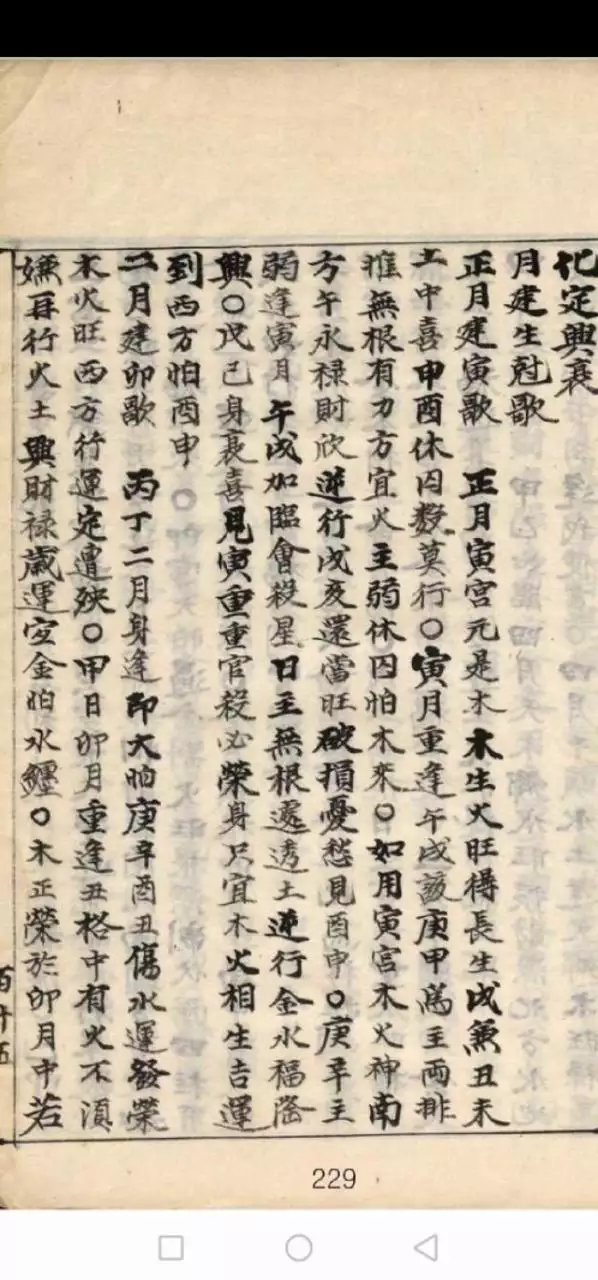 化定興衰
月建生尅歌
正月建寅歌　正月寅宮元是木木生火旺得長生戌兼丑未
土中喜甲酉休囚数莫行〇寅月重逢午戌該庚甲為主両排
推無根有力方宜火主弱休囚怕木來〇如用寅宮木火神南
方午永禄財欣逆行戌亥還當旺破損憂愁見酉申〇庚辛主
弱逢寅月午戌加臨會殺星日主無根還透土逆行金水福隆
興〇戊己身衰喜見寅重重官殺必榮身只宜木火相生吉運
到西方怕酉申
二月建卯歌　丙丁二月身逢印大怕庚辛酉丑傷水運發榮
木火旺西方行運定遭殃〇甲日卯月重逢丑格中有火不湏
嫌再行火土興財禄歳運安金怕水纏〇木正榮於卯月中若
百十五
229